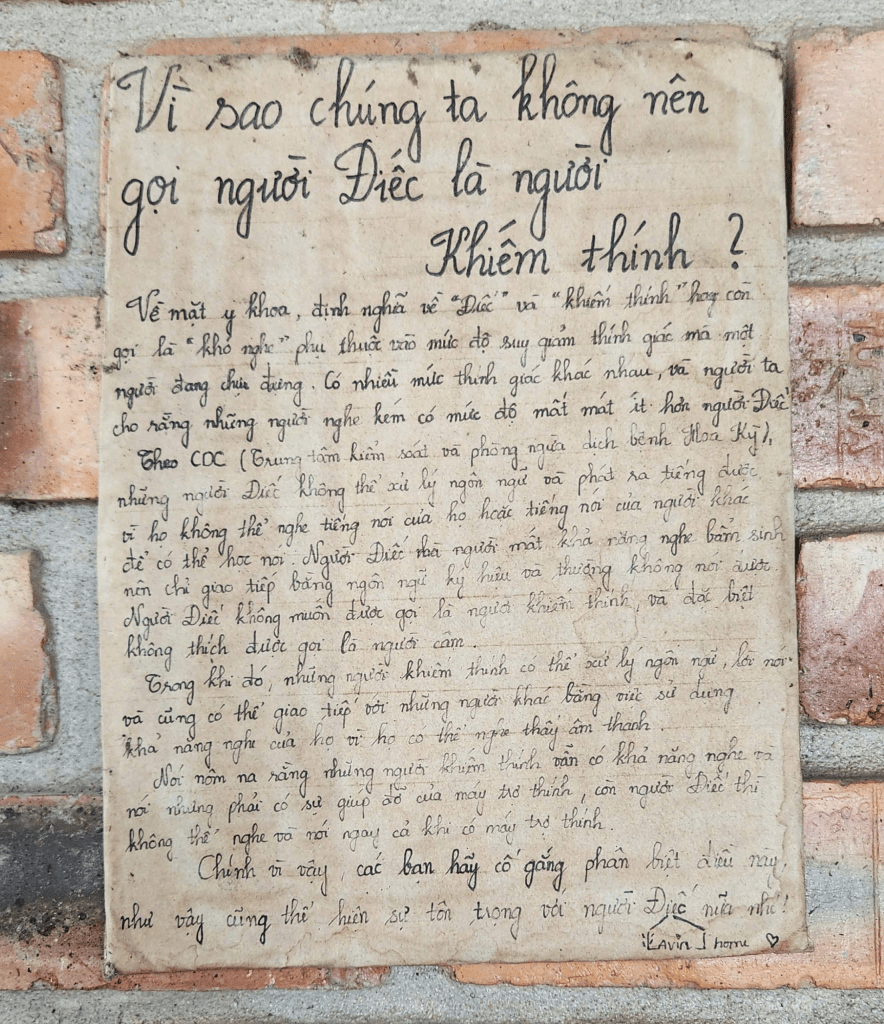 Vì sao chúng ta không nên
gọi người Điếc là người
Khiếm thính ?
Về mặt y khoa, định nghĩa về "Điếc" và "khiếm thính" hay còn
gọi là "khó nghe" phụ thuộc vào mức độ suy giảm thính giác mà một
người đang chịu đựng. Có nhiều mức thính giác khác nhau, và người ta
cho rằng những người nghe kém có mức độ mất mát ít hơn người Điếc
Theo CDC (Trung tâm kiểm soát và phòng ngừa dịch bệnh Hoa Kỳ),
những người Điếc không thể xử lý ngôn ngữ và phát ra tiếng được
vì họ không thể nghe tiếng nói của họ hoặc tiếng nói của người khác
để có thể học nói. Người Điếc là người mất khả năng nghe bẩm sinh
nên chỉ giao tiếp bằng ngôn ngữ ký hiệu và thường không nói được.
Người Điếc không muốn được gọi là người khiếm thính, và đặc biệt
không thích được gọi là người câm.
Trong khi đó, những người khiếm thính có thể xử lý ngôn ngữ, lời nói
và cũng có thể giao tiếp với những người khác bằng việc sử dụng
khả năng nghe của họ vì họ có thể nghe thấy âm thanh.
Nói nôm na rằng những người khiếm thính vẫn có khả năng nghe và
nói nhưng phải có sự giúp đỡ của máy trợ thính, còn người Điếc thì
không thể nghe và nói ngay cả khi có máy trợ thính.
Chính vì vậy, các bạn hãy cố gắng phân biệt điều này,
như vậy cũng thể hiện sự tôn trọng với người Điếc nữa nhé!
home ♡